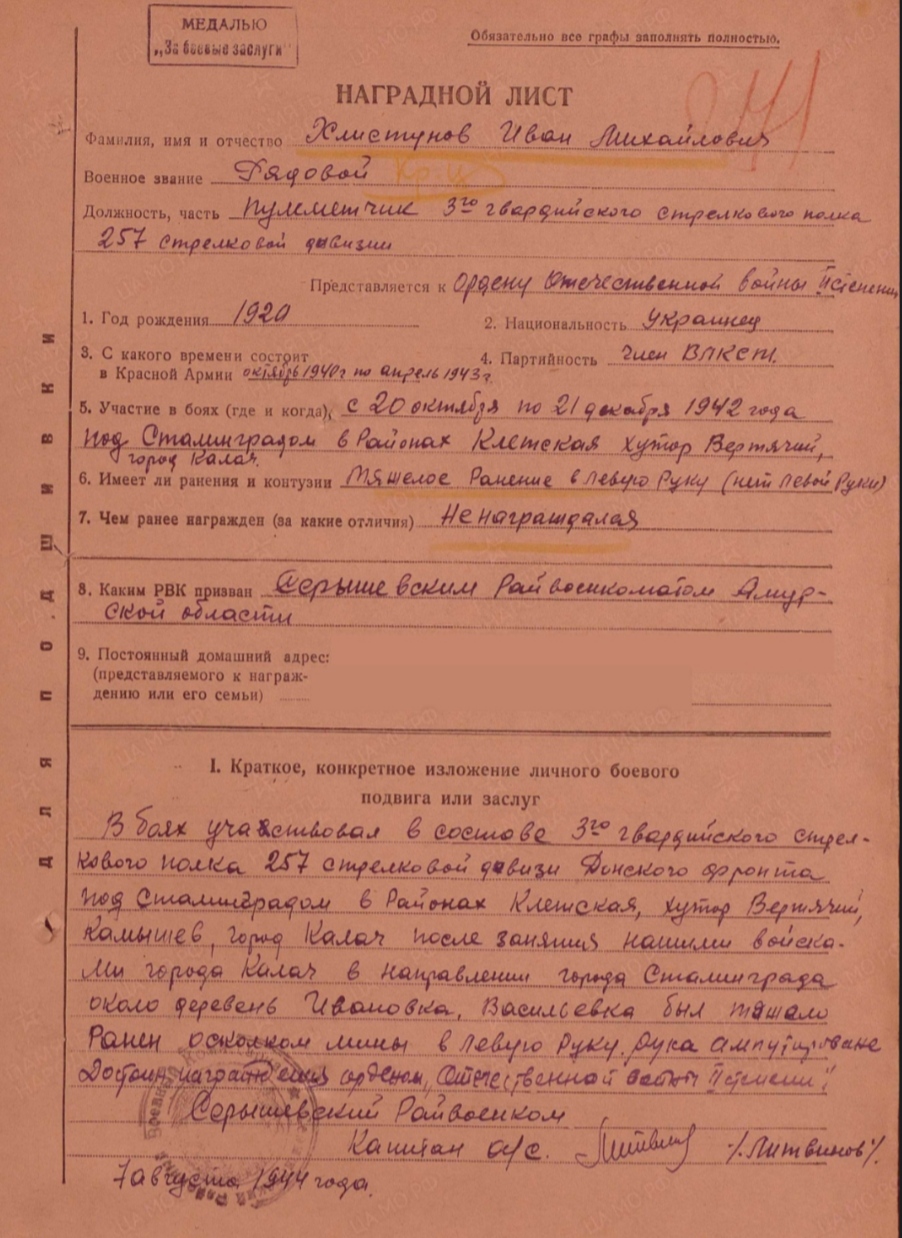 МЕДАЛЬЮ
„За боевые заслуги"
Обязательно все графы заполнять полностью.
НАГРАДНОЙ ЛИСТ
Фамилия, имя и отчество Хлистунов Иван Михайлович
Военное звание Рядовой
Должность, часть пулеметчик 3го гвардийского стрелкового полка
257 стрелковой дивизии
Представляется к Ордену Отечественной войны II степени
1. Год рождения 1920
2. Национальность Украинец
3. С какого времени состоит
в Красной Армии октябрь 1940г по апрель 1943г.
4. Партийность член ВЛКСМ.
5. Участие в боях (где и когда) с 20 октября по 21 декабря 1942 года
под Сталинградом в Районах Клетская хутор Вертячий,
город Калач.
6. Имеет ли ранения и контузии Тяжелое Ранение в левую Руку (нет левой Руки)
7. Чем ранее награжден (за какие отличия) Не награждался
8. Каким РВК призван Серышевским Райвоенкоматом Амур-
ской области
9. Постоянный домашний адрес:
(представляемого к награж-
дению или его семьи)
ДЛЯ ПОДШИВКИ
I. Краткое, конкретное изложение личного боевого
подвига или заслуг
В боях участвовал в составе 3го гвардийского стрел-
кового полка 257 стрелковой дивизи Донского фронта
под Сталинградом в Районах Клетская, хутор Вертячий,
Камышев, город Калач после занятия нашими войска-
ми города Калач в направлении города Сталинграда
около деревень Ивановка, Васильевка был тяжело
Ранен осколком мины в левую Руку. Рука ампутирована
Достоин награждения орденом „Отечественной войны II степени"
Серышевский Райвоенком
Капитан а/с. /Литвинов/.
7 августа 1944 года.